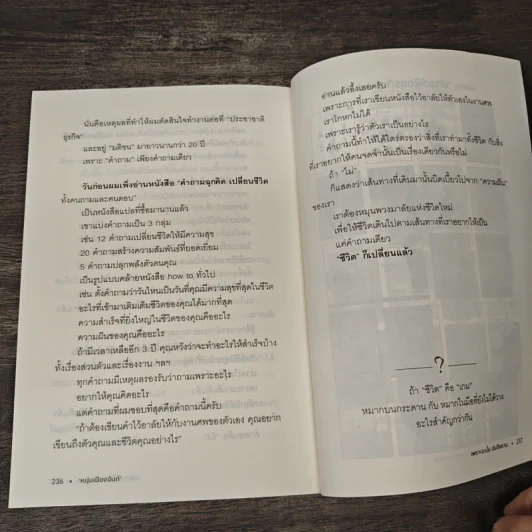 นั่นคือเหตุผลที่ทำให้ผมตัดสินใจทำงานต่อที่ "ประชาชาติ
ธุรกิจ"
และอยู่ "มติชน" มายาวนานกว่า 20 ปี
เพราะ "คำถาม" เพียงคำถามเดียว
วันก่อนผมเพิ่งอ่านหนังสือ "คำถามฉุกคิด เปลี่ยนชีวิต
ทั้งคนถามและคนตอบ"
เป็นหนังสือแปลที่ซื้อมานานแล้ว
เขาแบ่งคำถามเป็น 3 กลุ่ม
เช่น 12 คำถามเปลี่ยนชีวิตให้มีความสุข
20 คำถามสร้างความสัมพันธ์ที่ยอดเยี่ยม
5 คำถามปลุกพลังตัวคนคุณ
เป็นรูปแบบคล้ายหนังสือ how to ทั่วไป
เช่น ตั้งคำถามว่าวันไหนเป็นวันที่คุณมีความสุขที่สุดในชีวิต
อะไรที่เข้ามาเติมเต็มชีวิตของคุณได้มากที่สุด
ความสำเร็จที่ยิ่งใหญ่ในชีวิตของคุณคืออะไร
ความฝันของคุณคืออะไร
ถ้ามีเวลาเหลืออีก 3 ปี คุณหวังว่าจะทำอะไรให้สำเร็จบ้าง
ทั้งเรื่องส่วนตัวและเรื่องงาน ฯลฯ
ทุกคำถามมีเหตุผลรองรับว่าถามเพราะอะไร
อยากให้คุณคิดอะไร
แต่คำถามที่ผมชอบที่สุดคือคำถามนี้ครับ
"ถ้าต้องเขียนคำไว้อาลัยให้กับงานศพของตัวเอง คุณอยาก
เขียนถึงตัวคุณและชีวิตคุณอย่างไร"
236 • 'หนุ่มเมืองจันท์'
อ่านแล้วอึ้งเลยครับ
เพราะการที่เราเขียนหนังสือไว้อาลัยให้ตัวเองในงานศพ
เราโกหกไม่ได้
เพราะเรารู้ว่าตัวเราเป็นอย่างไร
คำถามนี้ทำให้ได้ไตร่ตรองว่าสิ่งที่เราทำมาทั้งชีวิต กับสิ่ง
ที่เราอยากให้คนจดจำนั้นเป็นเรื่องเดียวกันหรือไม่
ถ้า "ไม่"
ก็แสดงว่าเส้นทางที่เดินมานั้นบิดเบี้ยวไปจาก "ความฝัน"
ของเรา
เราต้องหมุนพวงมาลัยแห่งชีวิตใหม่
เพื่อให้ชีวิตเดินไปตามเส้นทางที่เราอยากให้เป็น
แค่คำถามเดียว
"ชีวิต" ก็เปลี่ยนแล้ว
?
ถ้า "ชีวิต" คือ "เกม"
หมากบนกระดาน กับ หมากในมือที่ยังไม่ได้วาง
อะไรสำคัญกว่ากัน
• 237